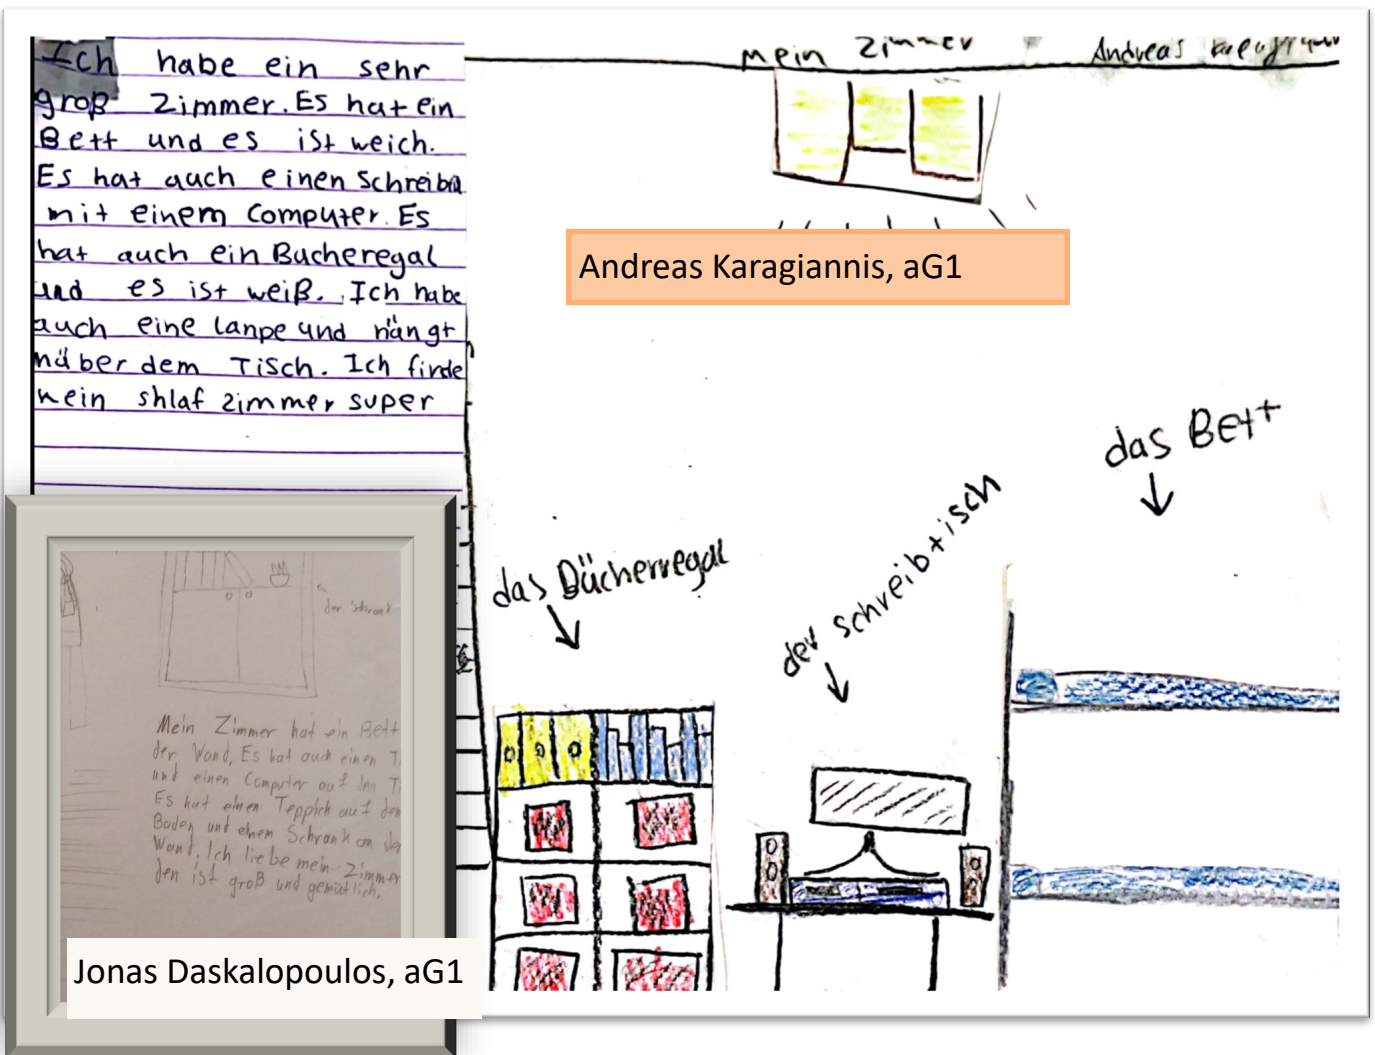 Ich habe ein sehr
groß Zimmer. Es hat ein
Bett und es ist weich.
Es hat auch einen
mit einem Computer. Es
hat auch ein Bucheregal
und es ist weiß. Ich habe
auch eine lanpe und hängt
über dem Tisch. Ich finde
mein shlaf zimmer super
Mein Zimmer Andreas
Andreas Karagiannis, aG1
das Bücherregal
der schreibtisch
das Bett
der Schrank
Mein Zimmer hat ein Bett
der Wand, Es hat auch einen
und einen Computer auf den
Es hat einen Teppich auf den
Boden und einem Schrank an
Wand. Ich liebe mein Zimmer
den ist groß und gemütlich.
Jonas Daskalopoulos, aG1